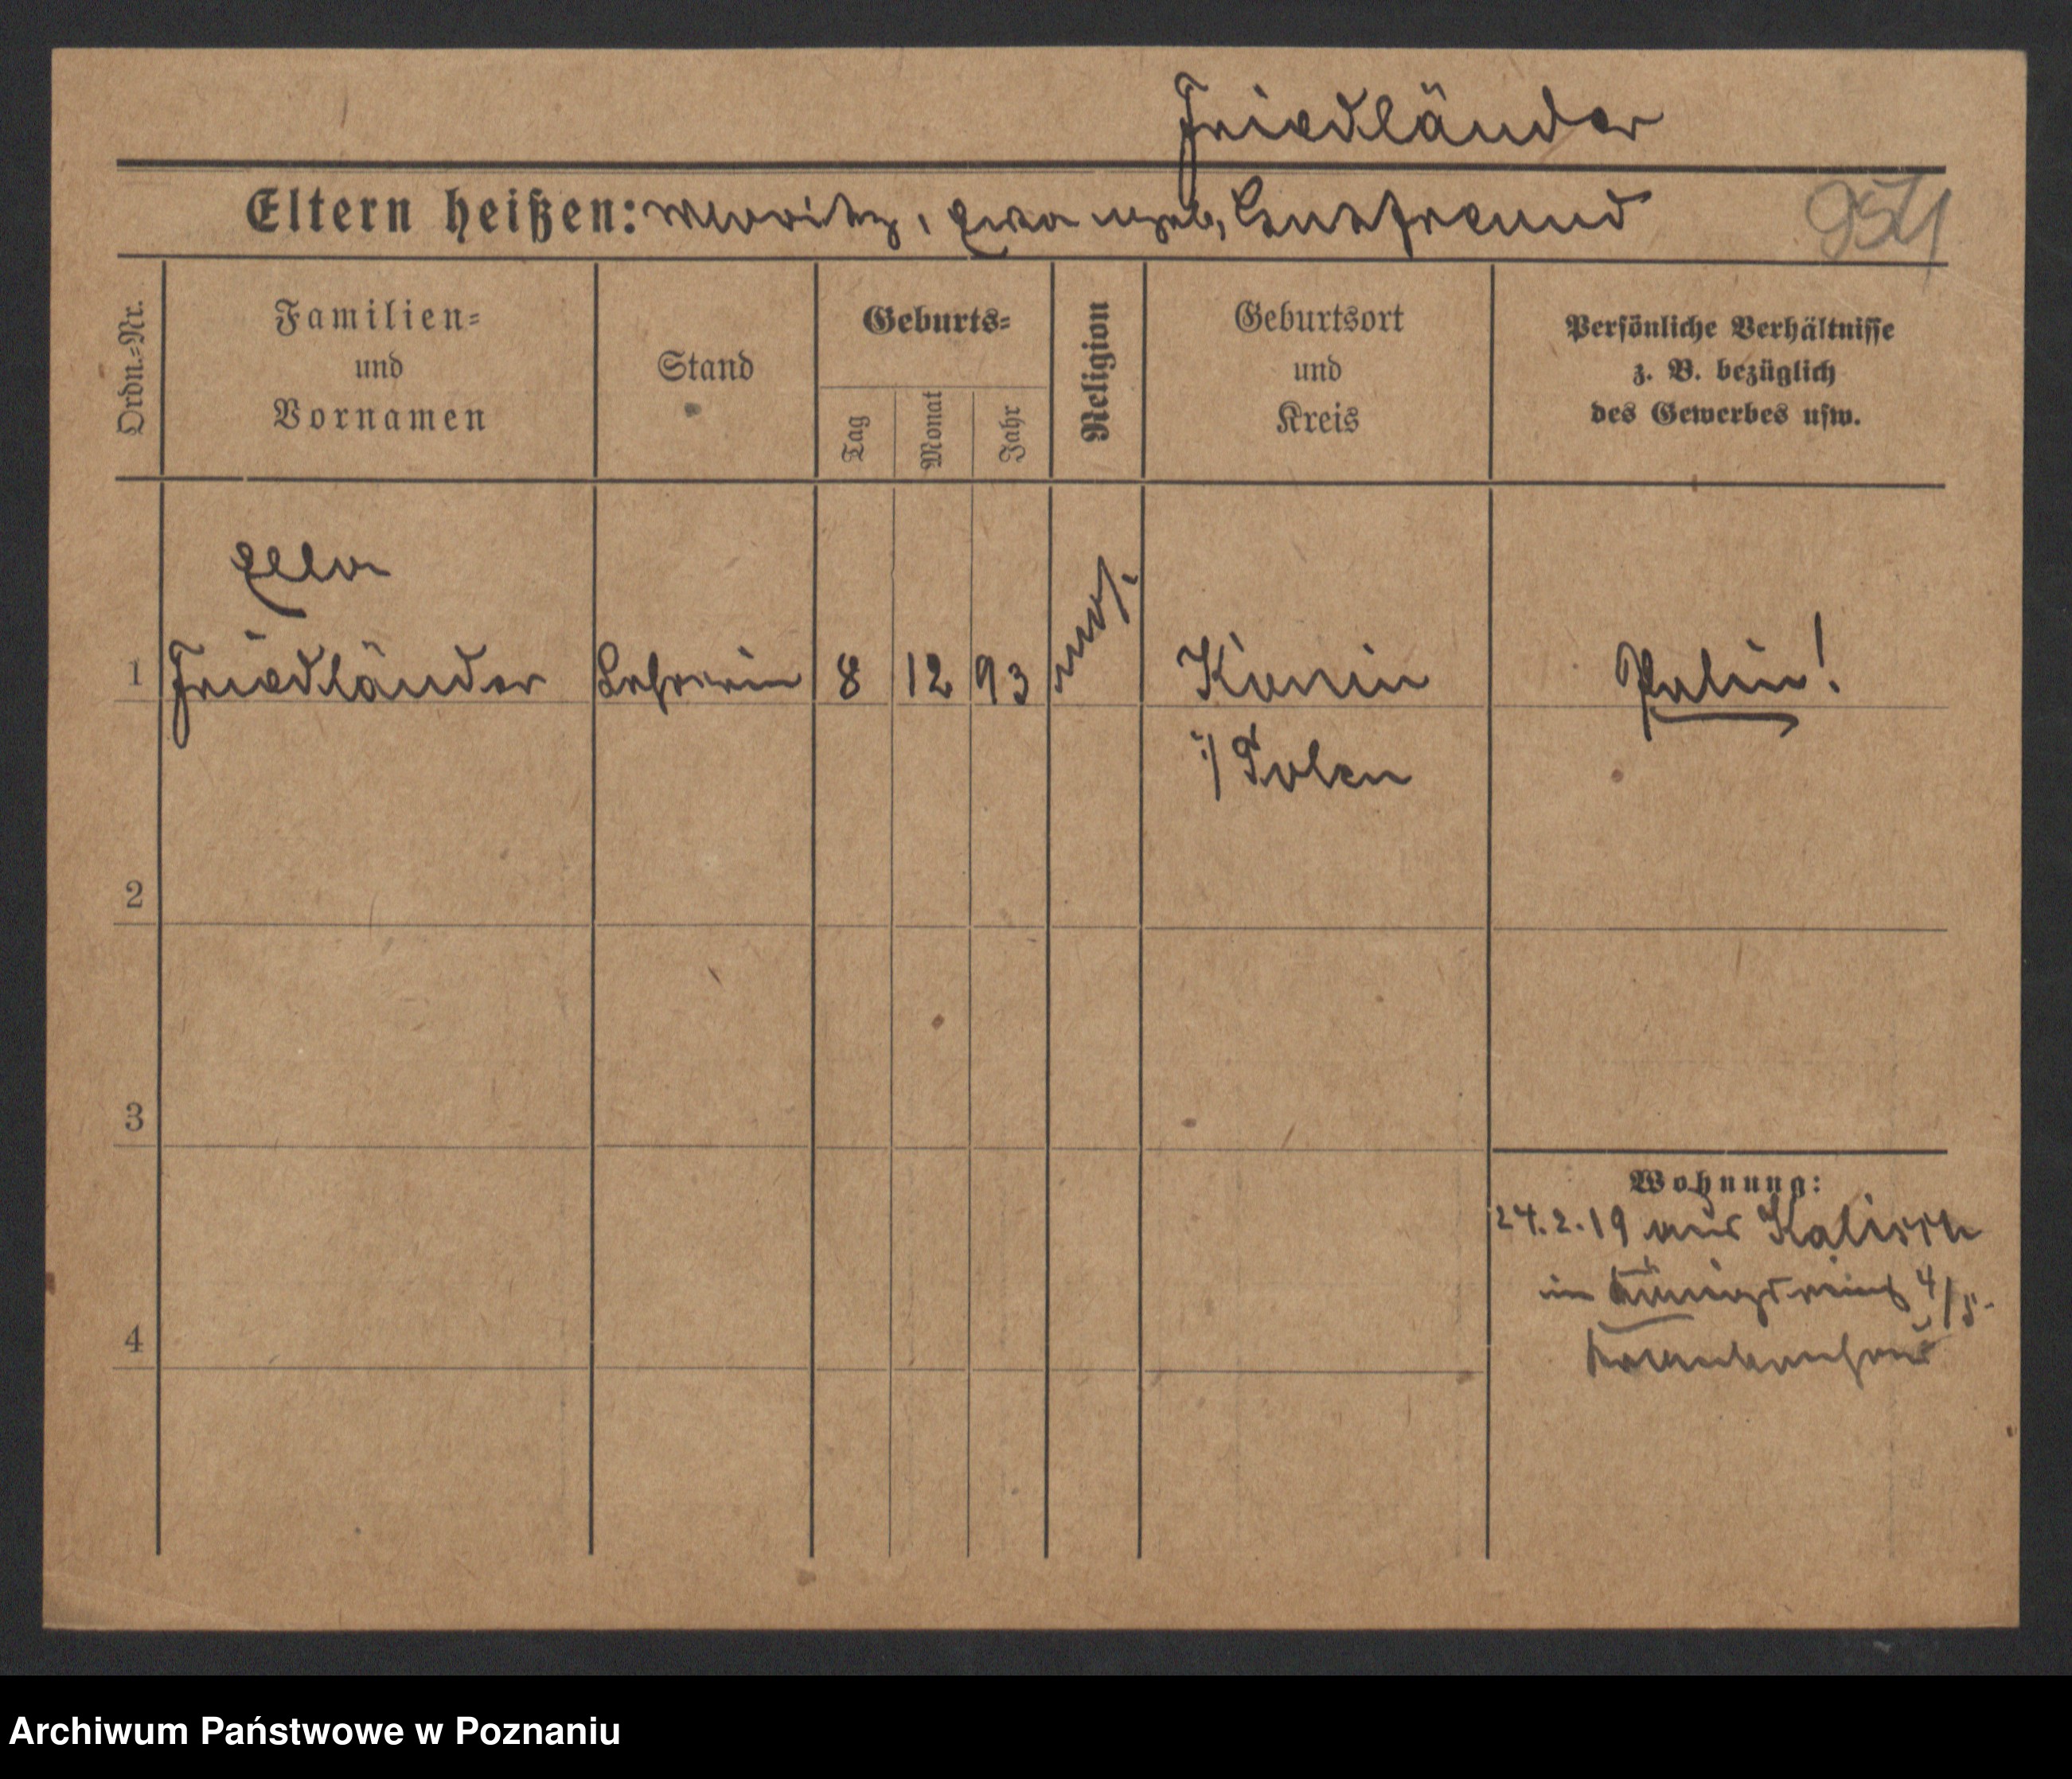 Friedländer
Eltern heißen: Moritz, Ewa geb. Lustfreund
954
Ordn.=Nr.
Familien=
und
Vornamen
Stand
Geburts=
Tag
Monat
Jahr
Religion
Geburtsort
und
Kreis
Persönliche Verhältnisse
z. B. bezüglich
des Gewerbes usw.
Ella
1 Friedländer Lehrerin 8 12 93 mos. Konin Polin!
i/ Polen
2
3
4
Wohnung:
24.2.19 aus Kalisch
in Königsring 4/5.
Krankenhaus
Archiwum Państwowe w Poznaniu